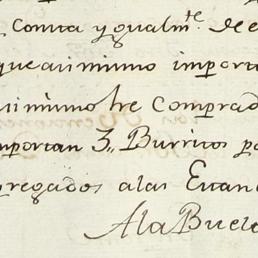 Consta ygualmte. de e
que asimismo importa
asimismo he Comprad
importan 3,, Burritos pa
gregados alas Estan
A la Buelt